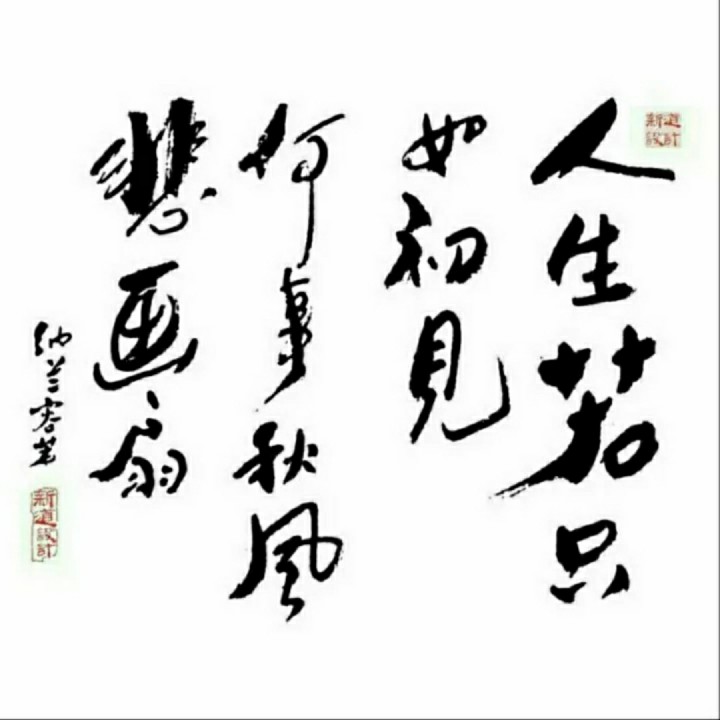 新道
設計
人生若只
如初見
何事秋風
悲画扇
纳兰容若
新道設計